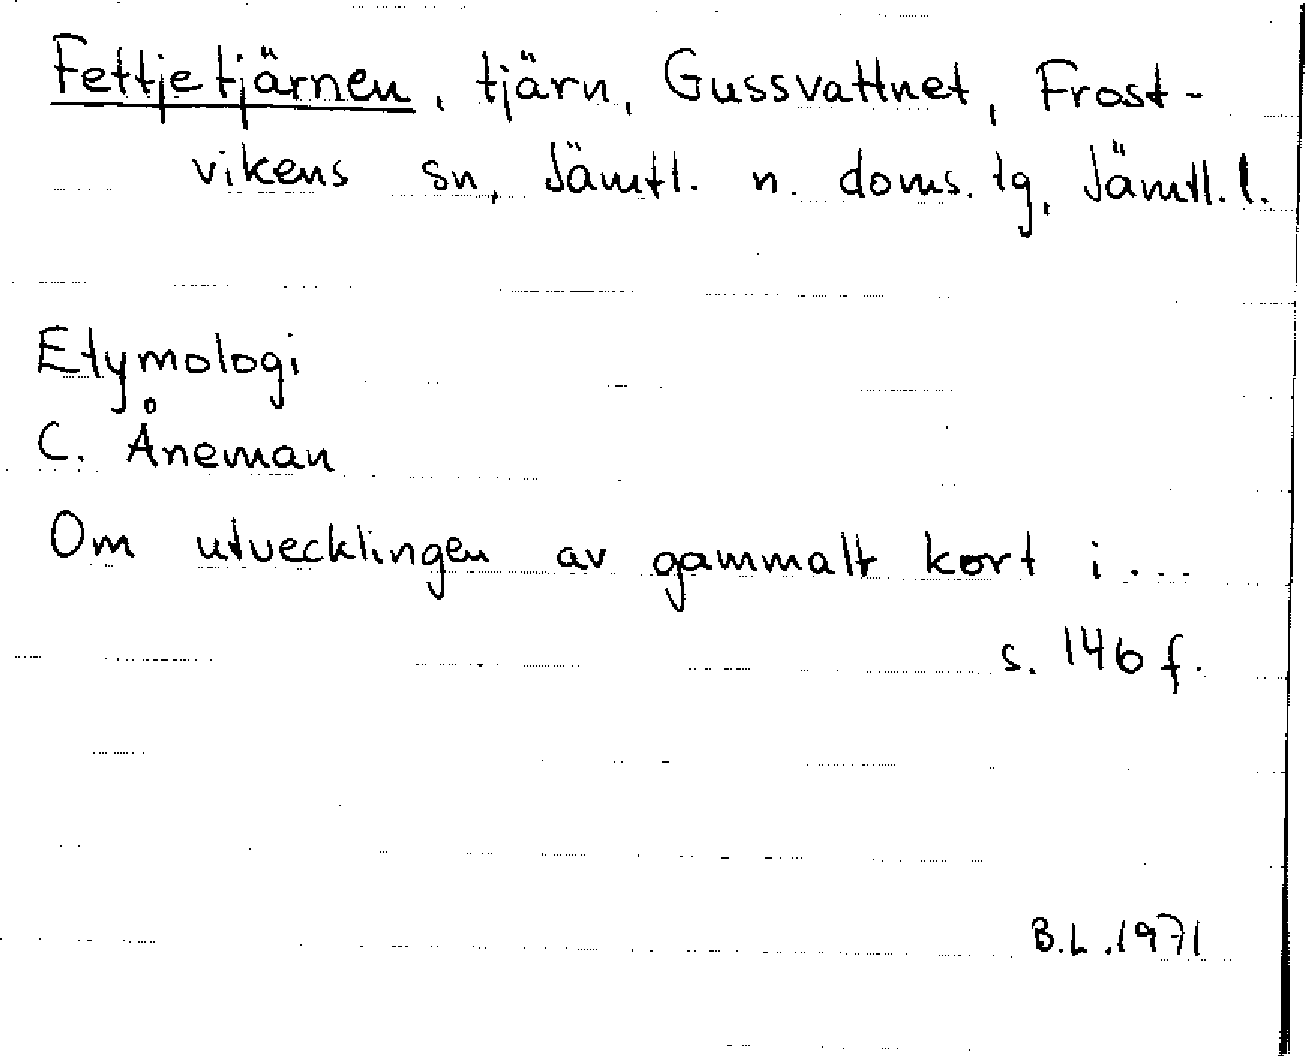 Fettjetjärnen, tjärn, Gussvattnet, Frost-
vikens sn, Jämtl. n. doms. tg, Jämtl. l.
Etymologi
C. Åneman
Om utvecklingen av gammalt kort i...
s. 146 f.
B.L. 1971